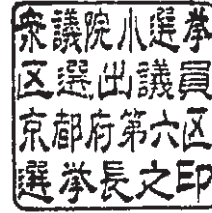 衆議院小選挙
区選出議員
京都府第六区
選挙長之印